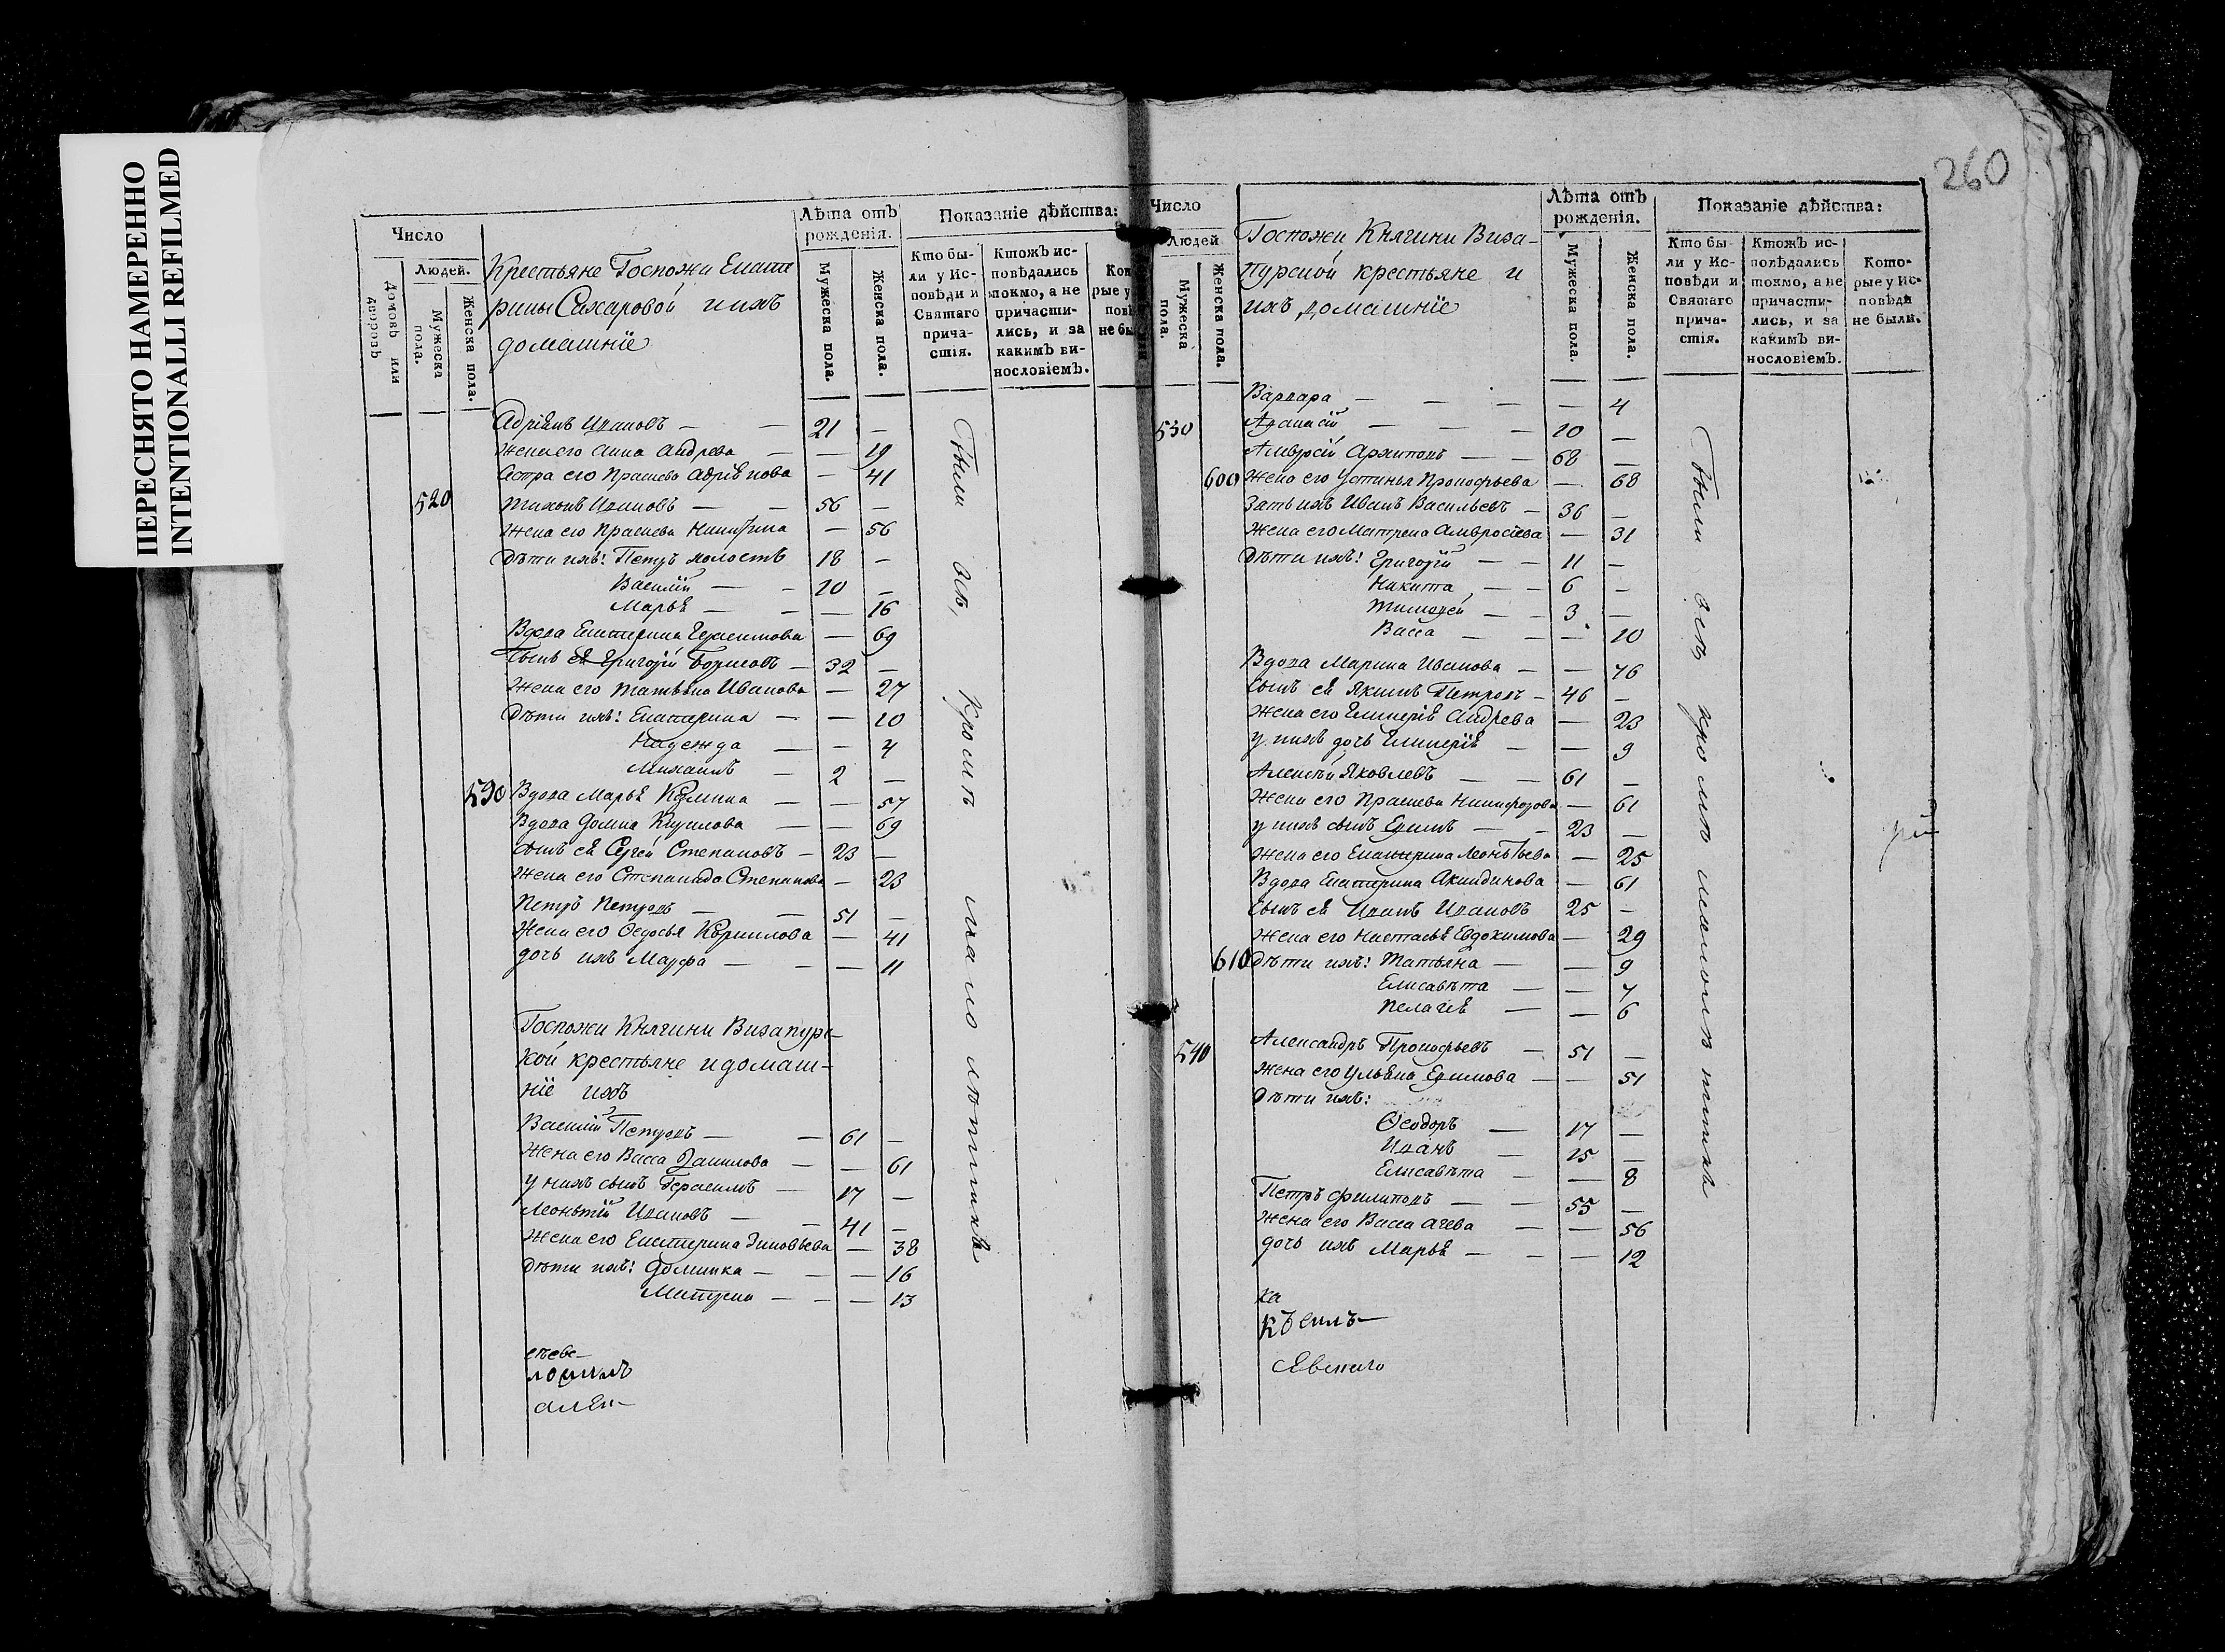 ПЕРЕСНЯТО НАМЕРЕННО
INTENTIONALLI REFILMED
260
Число
Людей.
Домовъ или дворовъ
Мужеска пола.
Женска пола.
Крестьяне Госпожи Екате
рины Сахаровой и ихъ
домашніе
Лѣта отъ рожденія.
Мужеска пола.
Женска пола.
Показаніе дѣйства:
Кто бы-
ли у Ис-
повѣди и
Святаго
прича-
стія.
Ктожъ ис-
повѣдались
токмо, а не
причасти-
лись, и за
какимъ ви-
нословіемъ.
Адріянъ Ивановъ — — 21 —
Жена его Анна Андрева — — 19
Сестра его Прасковья Адріянова — 41
520 Тихонъ Ивановъ — — 56 —
Жена его Прасковья Никитина — 56
Дѣти ихъ: Петръ холостъ 18 —
Василій — — 10 —
Марья — — — 16
Вдова Екатерина Герасимова — 69
Сынъ ея Григорій Борисовъ — 32 —
Жена его Татьяна Иванова — 27
Дѣти ихъ: Екатерина — — 10
Надежда — — 4
Михаилъ — 2 —
590 Вдова Марья Козмина — — 57
Вдова Домна Кирилова — — 69
Сынъ ея Сергей Степановъ — 23 —
Жена его Степанида Степанова — 23
Петръ Петровъ — — 51 —
Жена его Ѳедосья Кориилова — 41
дочь ихъ Марфа — — — 11
Госпожи Княгини Визапурс-
кой крестьяне и домаш-
ніе ихъ
Василій Петровъ — — 61 —
Жена его Васса Данилова — — 61
у нихъ сынъ Герасимъ — 17 —
Леонтій Ивановъ — — 41 —
Жена его Екатерина Зиновьева — 38
Дѣти ихъ: Домника — — — 16
Матрена — — — 13
Были всѣ, кромѣ малолѣтнихъ
Число
Людей
Мужеска пола.
Женска пола.
Госпожи Княгини Виза-
пурской крестьяне и
ихъ домашніе
Лѣта отъ рожденія.
Мужеска пола.
Женска пола.
Показаніе дѣйства:
Кто бы-
ли у Ис-
повѣди и
Святаго
прича-
стія.
Ктожъ ис-
повѣдались
токмо, а не
причасти-
лись, и за
какимъ ви-
нословіемъ.
Кото-
рые у Ис-
повѣди
не были.
Варвара — — — — 4
530 Аѳанасій — — — 10 —
Амвросій Архиповъ — — 68 —
600 Жена его Устинья Прокофьева — 68
Зать ихъ Иванъ Васильевъ — 36 —
Жена его Матрена Амвросіева — 31
Дѣти ихъ: Григорій — — 11 —
Никита — — 6 —
Тимоѳей — — 3 —
Васса — — — 10
Вдова Марина Иванова — — 76
Сынъ ея Якимъ Петровъ — 46 —
Жена его Гликерія Андрева — 23
у нихъ дочь Гликерія — — 9
Алексѣй Яковлевъ — — 61 —
Жена его Прасковья Никифорова — 61
у нихъ сынъ Ефимъ — — 23 —
Жена его Екатерина Леонтьева — 25
Вдова Екатерина Акиндинова — 61
Сынъ ея Иванъ Ивановъ 25 —
Жена его Настасья Евдокимова — 29
610 Дѣти ихъ: Татьяна — — 9
Елисавѣта — — 7
Пелагея — — 6
540 Александръ Прокофьевъ — 51 —
Жена его Ульяна Ефимова — — 51
Дѣти ихъ:
Ѳеодоръ — 17 —
Иванъ — 15 —
Елисавѣта — — 8
Петръ Филиповъ — — 55 —
Жена его Васса — — 56
дочь ихъ Марья — — — 12
Были всѣ кромѣ малолѣтнихъ
ка